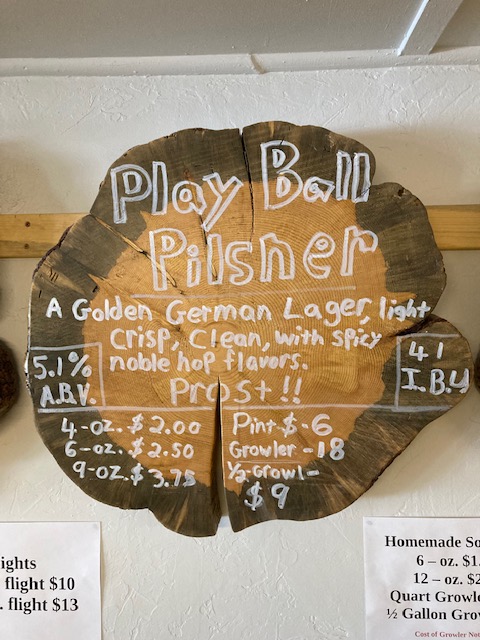 Play Ball
Pilsner
A Golden German Lager, light,
crisp, clean, with spicy
noble hop flavors.
Prost!!
5.1%
A.B.V.
41
I.B.U
4-oz. $2.00
6-oz. $2.50
9-oz. $3.75
Pint $-6
Growler -18
1/2-Growl-
$9
flight $10
. flight $13
Homemade
6 – oz.
12 – oz.
Quart
½ Gallon
Cost of Growler